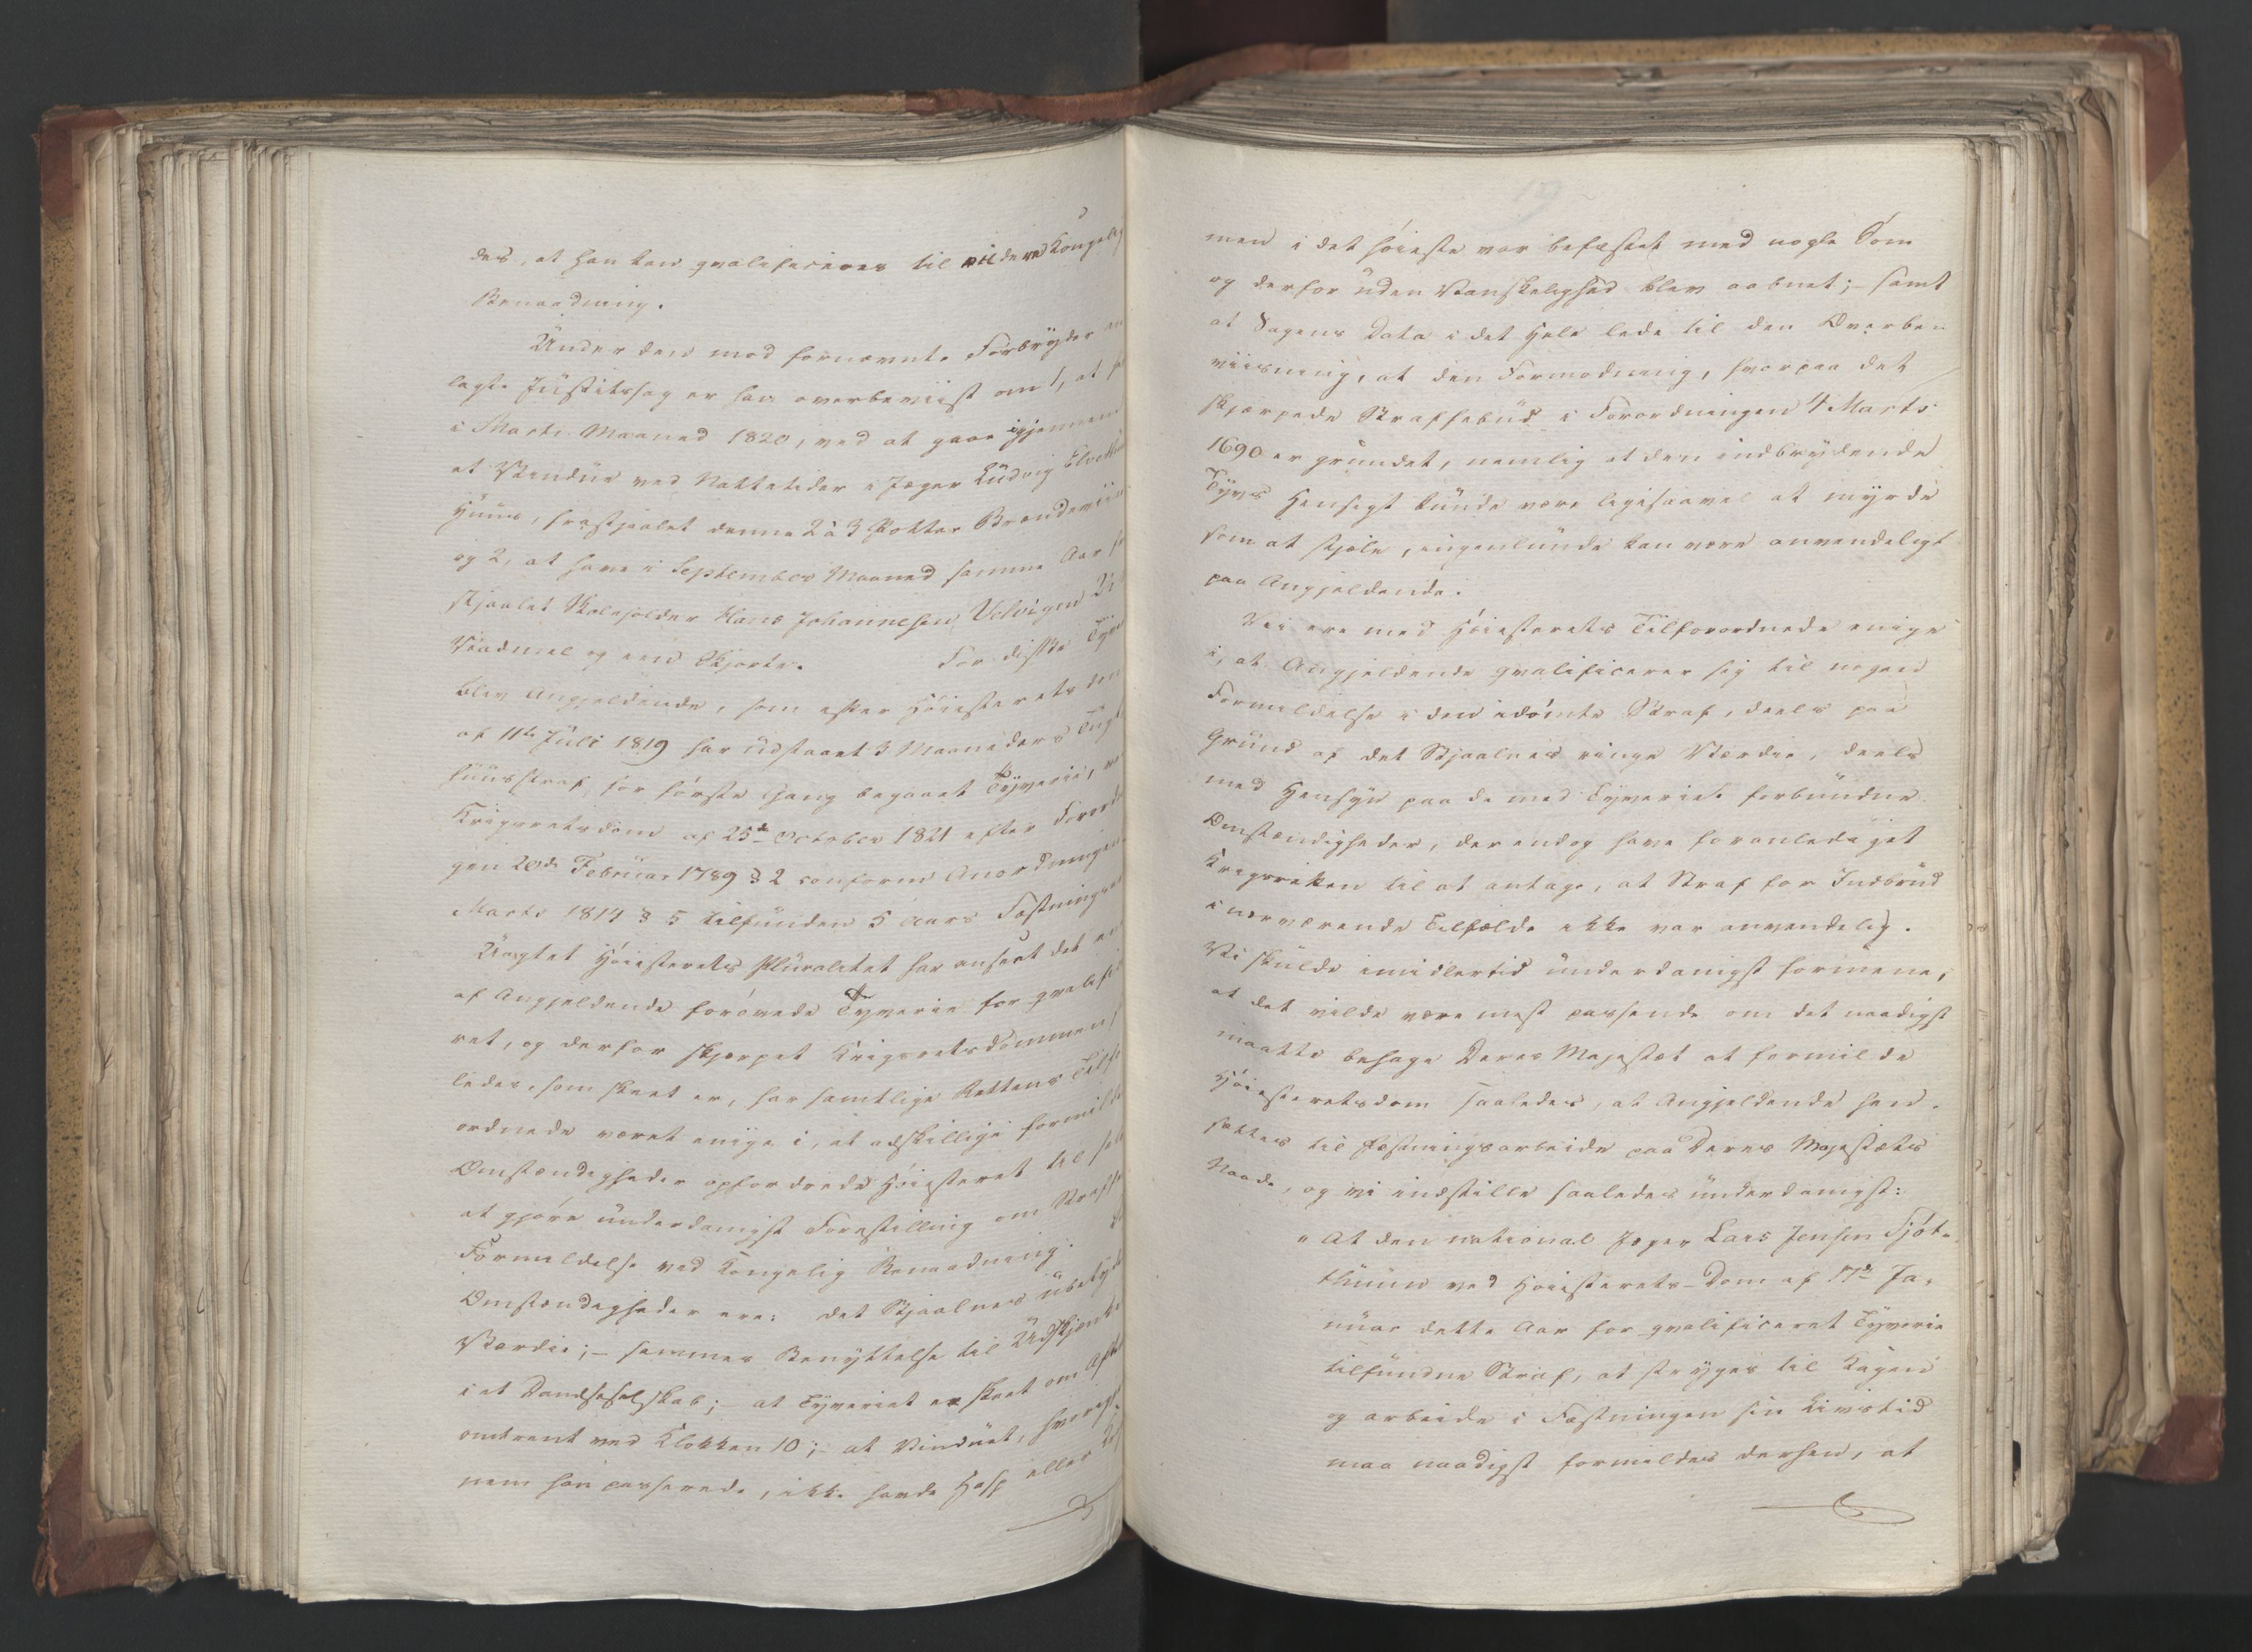 des, at han kan qvalificeres til vildere Kongelig
Benaadning.
Under den mod fornævnte Forbryder an
lagte Justitssag er han overbeviist om 1, at
i Marts Maaned 1820, ved at gaae igjennem
et Vindue ved Nattetider i Jæger Ludvig
Huus, frastjaalet denne 2 à 3 Potter Brændeviin
og 2, at have i September Maaned samme Aar
stjaalet Skoleholder Hans Johannesen Velvigen
Vadmel og een Skjorte. For disse
blev Angjeldende, som efter Høiesterets
af 11te Juli 1819 har udstaaet 3 Maaneders
huusstraf, for første Gang begaaet Tyverie,
Krigsretsdom af 25de October 1821 efter
gen 20de Februar 1789 § 2 conform Anordningen
Marts 1814 § 5 tilfunden 5 Aars Fæstnings
Uagtet Høiesterets Pluralitet har anseet det
af Angjeldende forøvede Tyverie for qvalifi
ret, og derfor skjærpet Krigsretsdommen
ledes, som skeet er, har samtlige Rettens
ordnede været enige i, at adskillige formil
Omstændigheder opfordrede Høiesteret til
at gjøre underdanigst Forestilling om Straffe
Formildelse ved Kongelig Benaadning.
Omstændigheder ere: det Stjaalnes ubety
Værdie;- sammes Benyttelse til Udskjenk
i et Dandseselskab;- at Tyveriet er skeet om
omtrent ved Klokken 10;- at Vinduet,
nem han passerede, ikke havde Hasp eller
men i det høieste var befæstet med nogle Søm
og derfor uden Vanskelighed blev aabnet;- samt
at Sagens Data i det Hele lede til den Overbe-
viisning, at den Formodning, hvorpaa det
skjærpede Straffebud i Forordningen 4 Marts
1690 er grundet, nemlig at den indbrydende
Tyvs Hensigt kunde være ligesaavel at myrde
som at stjæle, ingenlunde kan være anvendeligt
paa Angjeldende.
Vi ere med Høiesterets Tilforordnede enige
i, at Angjeldende qvalificerer sig til nogen
Formildelse i den idømte Straf, deels paa
Grund af det Stjaalnes ringe Værdie, deels
med Hensyn paa de med Tyveriet forbundne
Omstændigheder, der endog have foranlediget
Krigsretten til at antage, at Straf for Indbrud
i nærværende Tilfælde ikke var anvendelig.
Vi skulde imidlertid underdanigst formene,
at det vilde være mest passende om det naadigst
maatte behage Deres Majestæt at formilde
Høiesteretsdom saaledes, at Angjeldende hen-
sættes til Fæstningsarbeide paa Deres Majestæts
Naade, og vi indstille saaledes underdanigst:
"At den national Jæger Lars Jensen Sjøt-
thuun ved Høiesterets-Dom af 17de Ja-
nuar dette Aar for qvalificeret Tyverie
tilfundne Straf, at stryges til Kagen
og arbeide i Fæstningen sin Livstid
maa naadigst formildes derhen, at